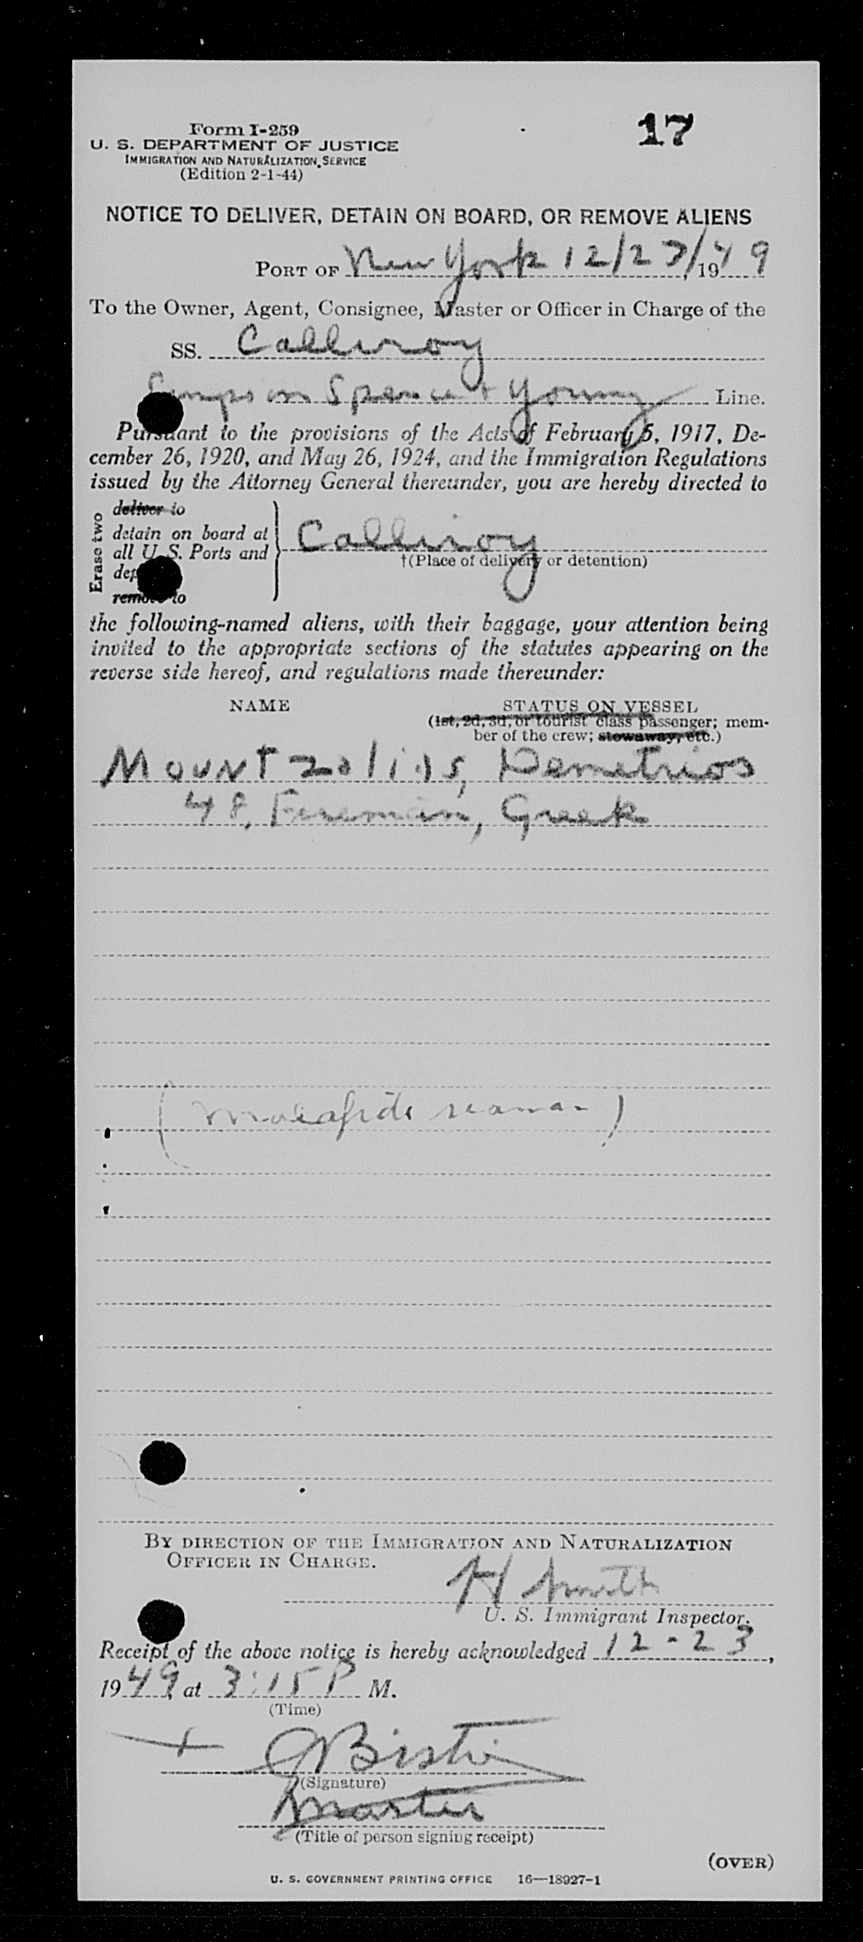 Form I-259
17
U. S. DEPARTMENT OF JUSTICE
IMMIGRATION AND NATURALIZATION SERVICE
(Edition 2-1-44)
NOTICE TO DELIVER, DETAIN ON BOARD, OR REMOVE ALIENS
PORT OF New York 12/23/1949
To the Owner, Agent, Consignee, Master or Officer in Charge of the
SS. Calliroy
Simpson Spence & Young Line.
Pursuant to the provisions of the Acts of February 5, 1917, De-
cember 26, 1920, and May 26, 1924, and the Immigration Regulations
issued by the Attorney General thereunder, you are hereby directed to
Erase two
deliver to
detain on board at
all U. S. Ports and
dep
remove to
Calliroy
†(Place of delivery or detention)
the following-named aliens, with their baggage, your attention being
invited to the appropriate sections of the statutes appearing on the
reverse side hereof, and regulations made thereunder:
NAME STATUS ON VESSEL
(1st, 2d, 3d, or tourist class passenger; mem-
ber of the crew; stowaway, etc.)
Demetrios
48, Fireman, Greek
(malafide seaman)
BY DIRECTION OF THE IMMIGRATION AND NATURALIZATION
OFFICER IN CHARGE.
H Smith
U. S. Immigrant Inspector.
Receipt of the above notice is hereby acknowledged 12-23,
1949 at 3:15 P M.
(Time)
(Signature)
Master
(Title of person signing receipt)
(OVER)
U. S. GOVERNMENT PRINTING OFFICE 16—18927-1